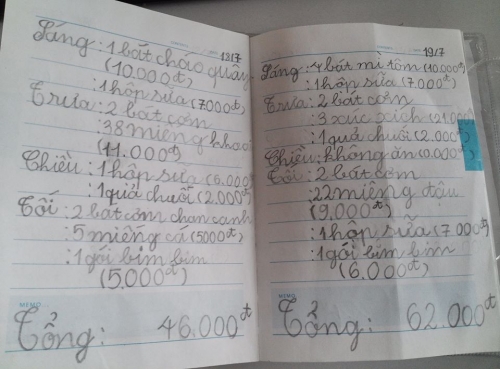 18/7
Sáng: 1 bát cháo quẩy
(10.000đ)
: 1 hộp sữa (7000đ)
Trưa: 2 bát cơm
: 38 miếng khoai
(11.000đ)
Chiều: 1 hộp sữa (6.000đ)
: 1 quả chuối (2.000đ)
Tối: 2 bát cơm chan canh
: 5 miếng cá (5000đ)
: 1 gói bim bim
(5.000đ)
MEMO
Tổng: 46.000đ
19/7
Sáng: 4 bát mì tôm (10.000đ)
: 1 hộp sữa (7.000đ)
Trưa: 2 bát cơm
3 xúc xích (21.000
: 1 quả chuối (2.000đ)
Chiều: không ăn (0.000đ)
Tối: 2 bát cơm
: 22 miếng đậu
(9,000đ)
: 1 hộp sữa (7.000đ)
: 1 gói bim bim
(6.000đ)
MEMO
Tổng: 62.000đ